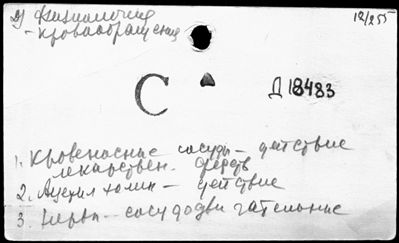 2) Физиология
- кровообращения
12/255
С
Д 18483
1. Кровеносные сосуды - действие
лекарствен. средств
2. Ацетилхолин - действие
3. Нервы - сосудодвигательные